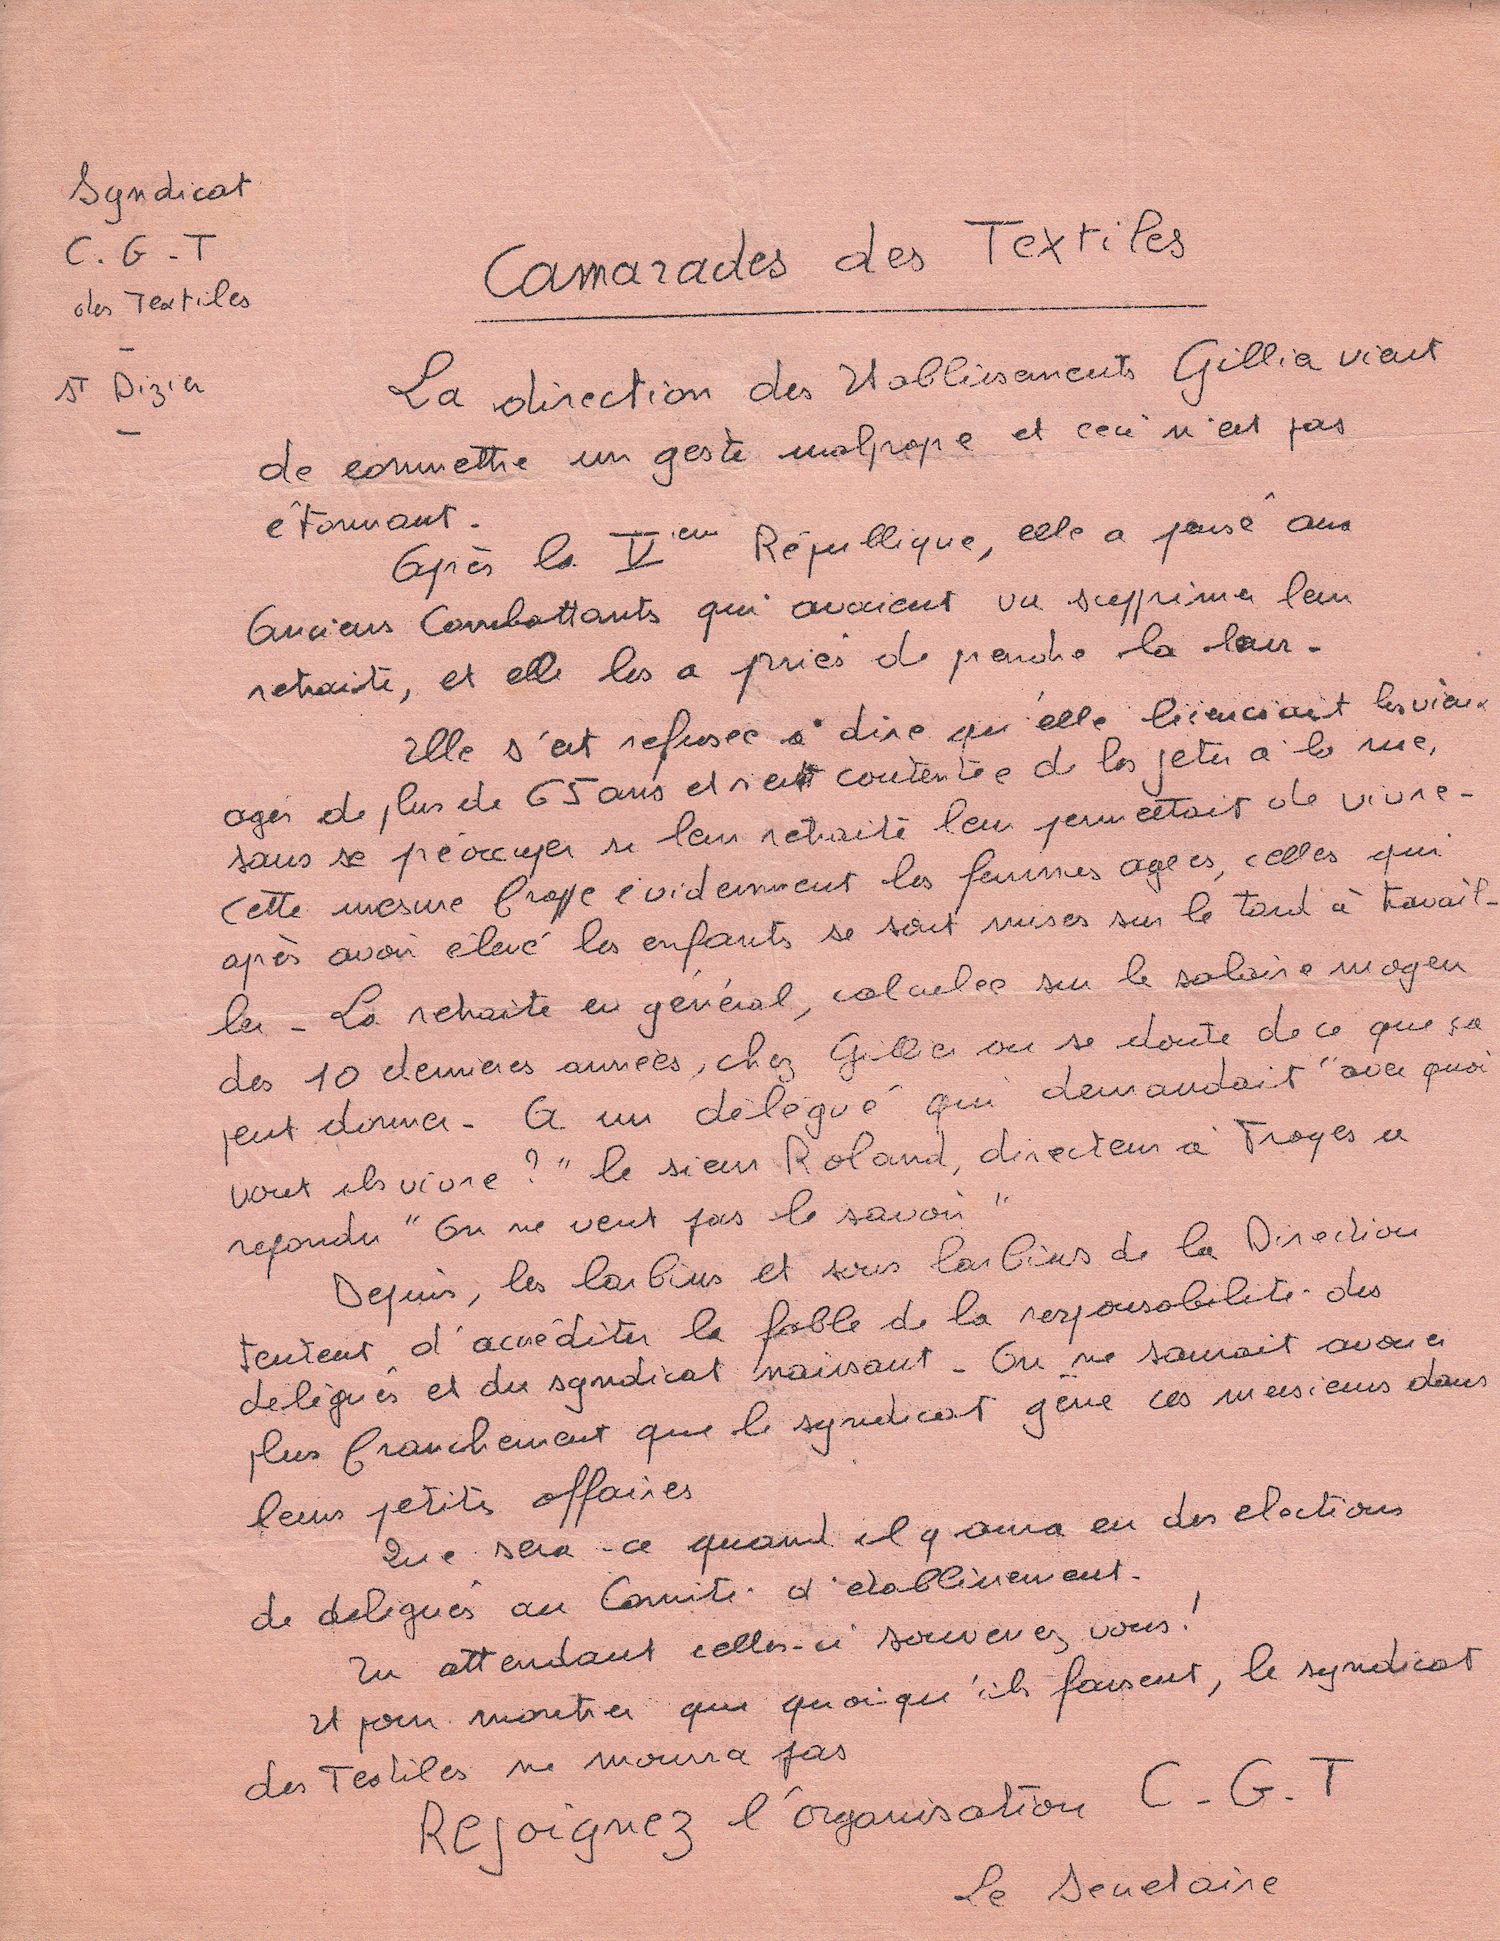 Syndicat
C.G.T
des Textiles
-
St Dizier
-
Camarades des Textiles
La direction des Etablissements Gillier vient
de commettre un geste malpropre et ceci n'est pas
étonnant.
Après la Vieme République, elle a pensé aux
Anciens Combattants qui avaient vu supprimer leur
retraite, et elle les a priés de prendre la leur.
Elle s'est refusée à dire qu'elle licenciait les vieux
agés de plus de 65 ans et s'est contentée de les jeter à la rue,
sans se préoccuper si leur retraite leur permettait de vivre-
Cette mesure frappe évidemment les femmes agées, celles qui
après avoir élevé les enfants se sont mises sur le tard à travail-
ler - La retraite en général, calculée sur le salaire moyen
des 10 dernieres années, chez Gillier on se doute de ce que ça
peut donner - A un délégué qui demandait "avec quoi
vont ils vivre ?" le sieur Roland, directeur à Troyes a
repondu "On ne veut pas le savoir"
Depuis, les larbins et sous larbins de la Direction
tentent d'accréditer la fable de la responsabilité des
delégués et du syndicat naissant - On ne saurait avouer
plus franchement que le syndicat gène ces messieurs dans
leurs petites affaires
Que sera-ce quand il y aura eu des elections
de délégués au Comité d'etablissement.
En attendant celles-ci souvenez vous!
Et pour montrer que quoi qu'ils fassent, le syndicat
des Textiles ne mourra pas
Rejoignez l'organisation C.G.T
Le Secretaire